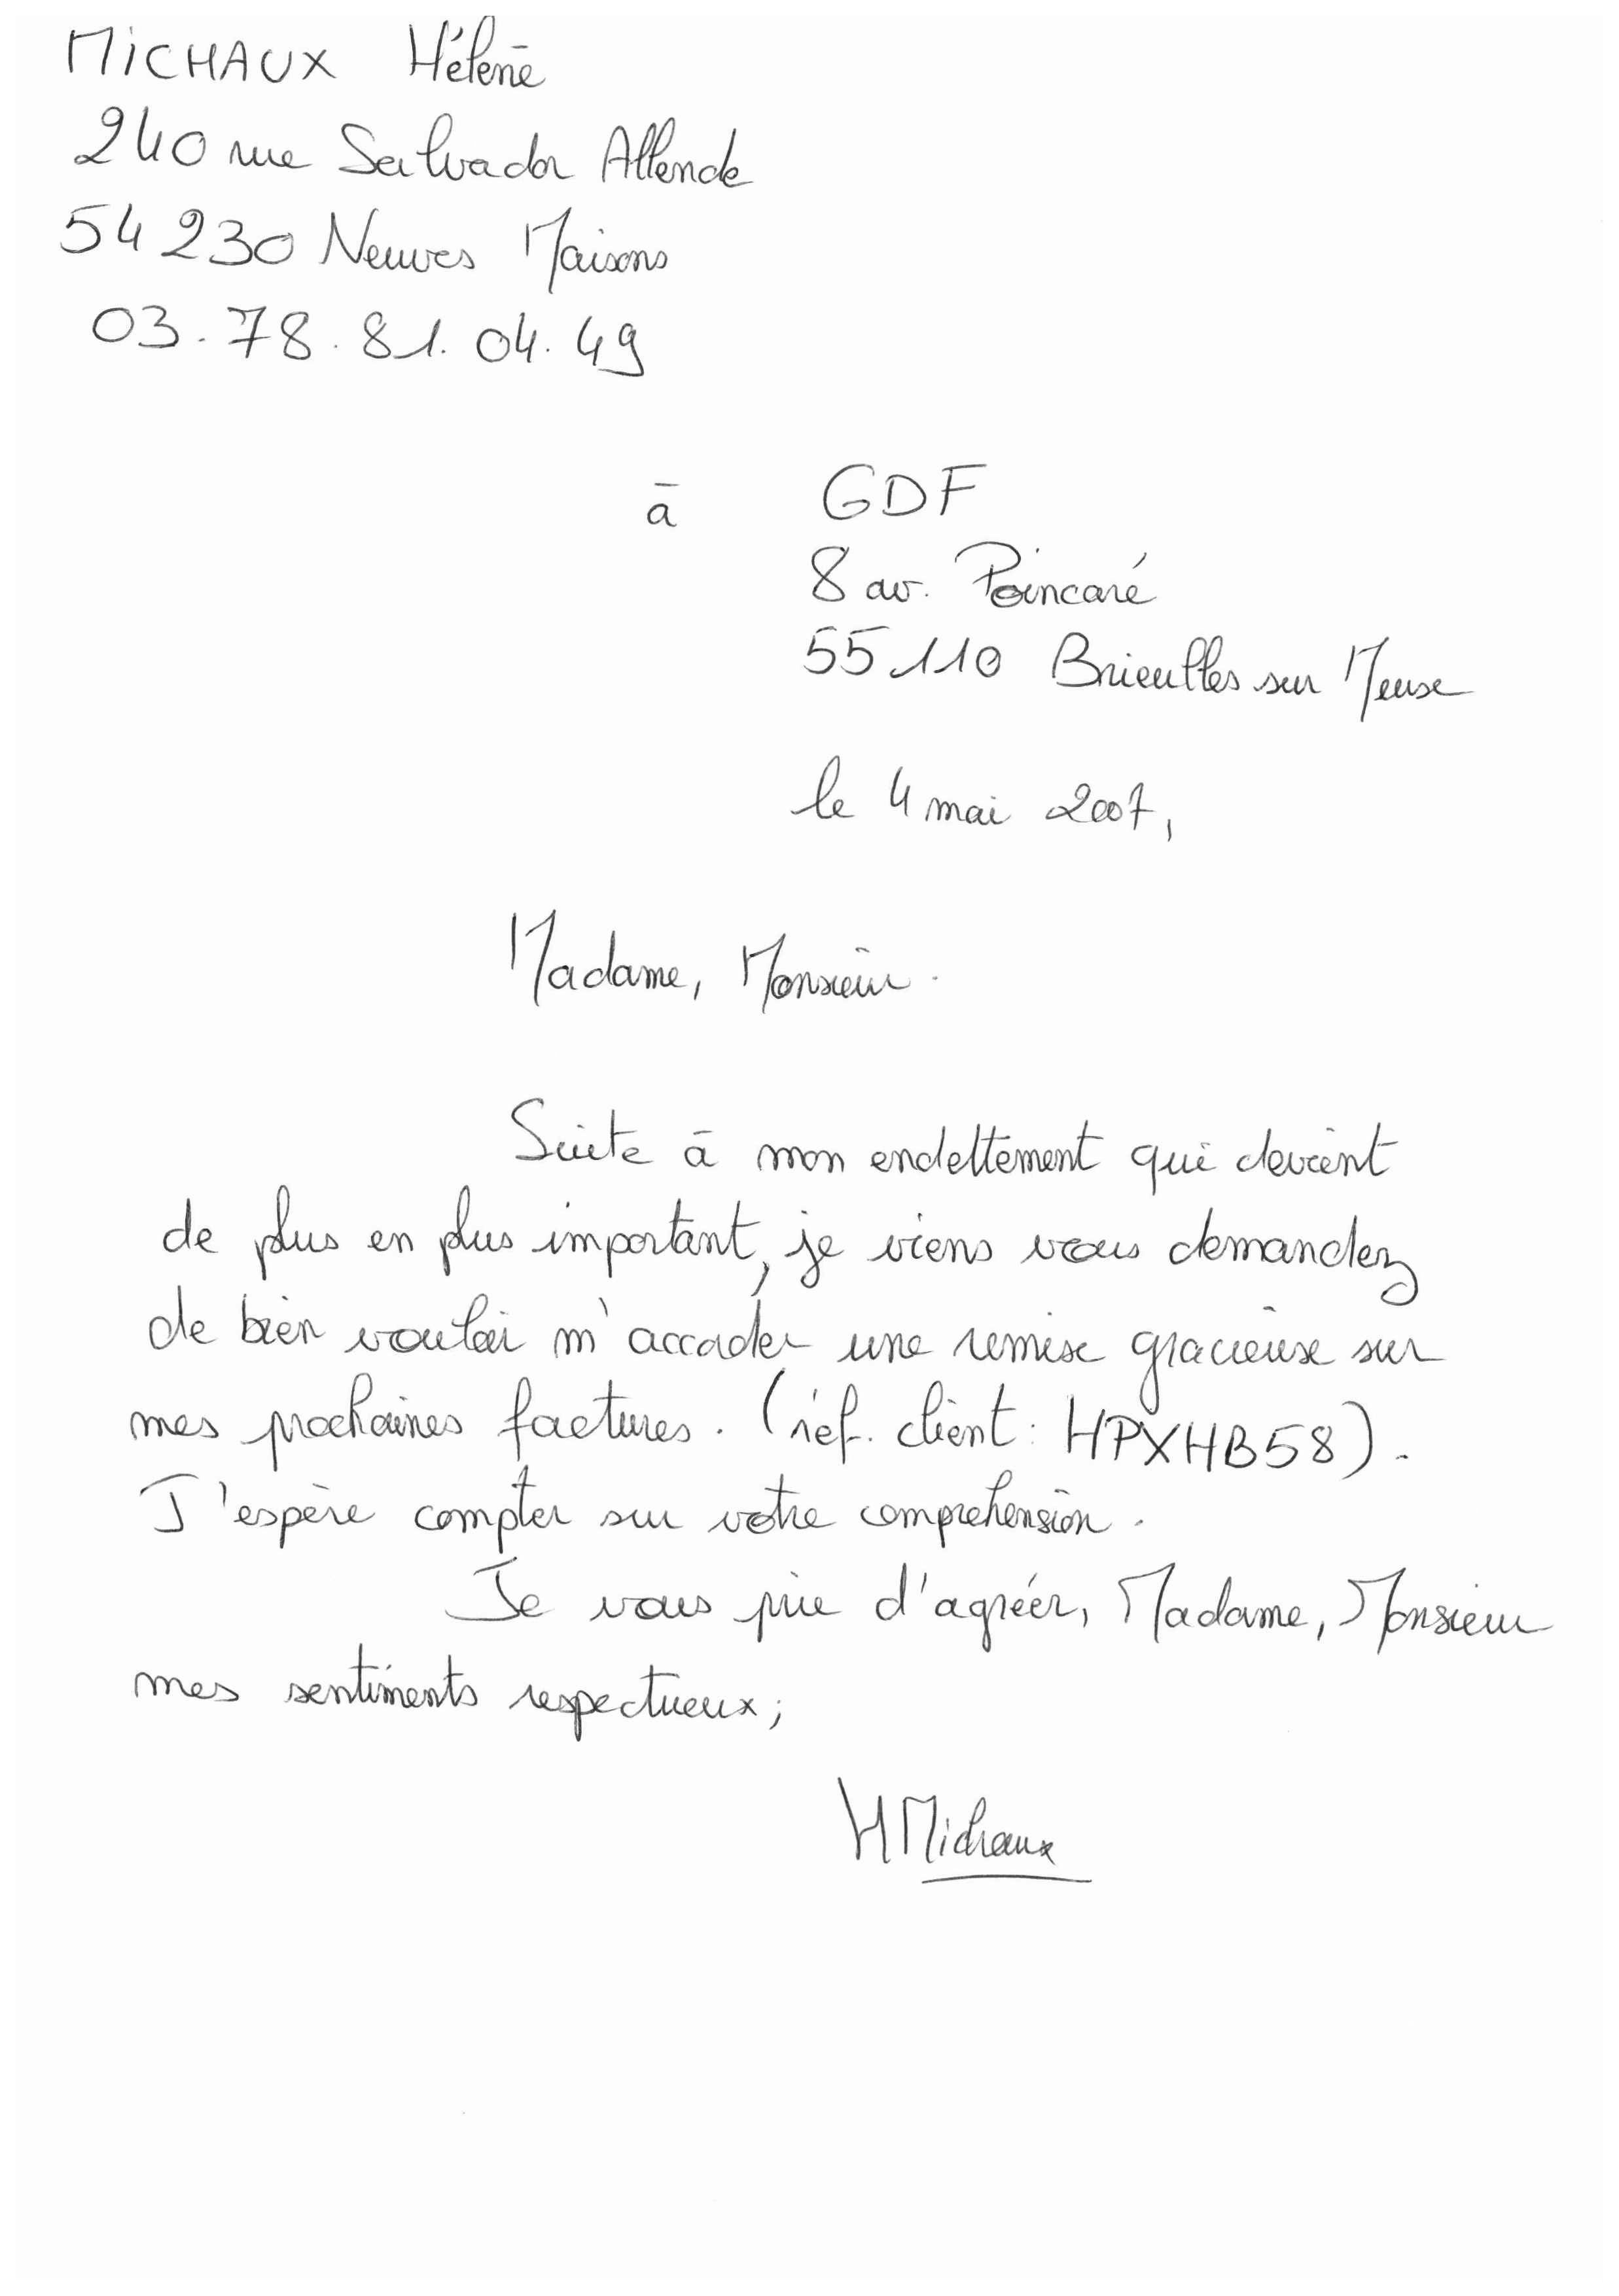 MICHAUX Hélène
240 rue Salvador Allende
54 230 Neuves Maisons
03.78.81.04.49
à GDF
8 av. Poincaré
55 110 Brieulles sur Meuse
le 4 mai 2007,
Madame, Monsieur.
Suite à mon endettement qui devient
de plus en plus important, je viens vous demandez
de bien vouloir m'accorder une remise gracieuse sur
mes prochaines factures. (réf. client : HPXHB58).
J'espère compter sur votre compréhension.
Je vous prie d'agréer, Madame, Monsieur
mes sentiments respectueux;
HMichaux